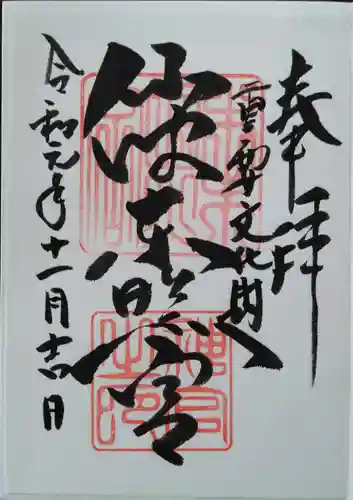 奉拝
重要文化財
仙波東照宮
令和元年十一月吉日